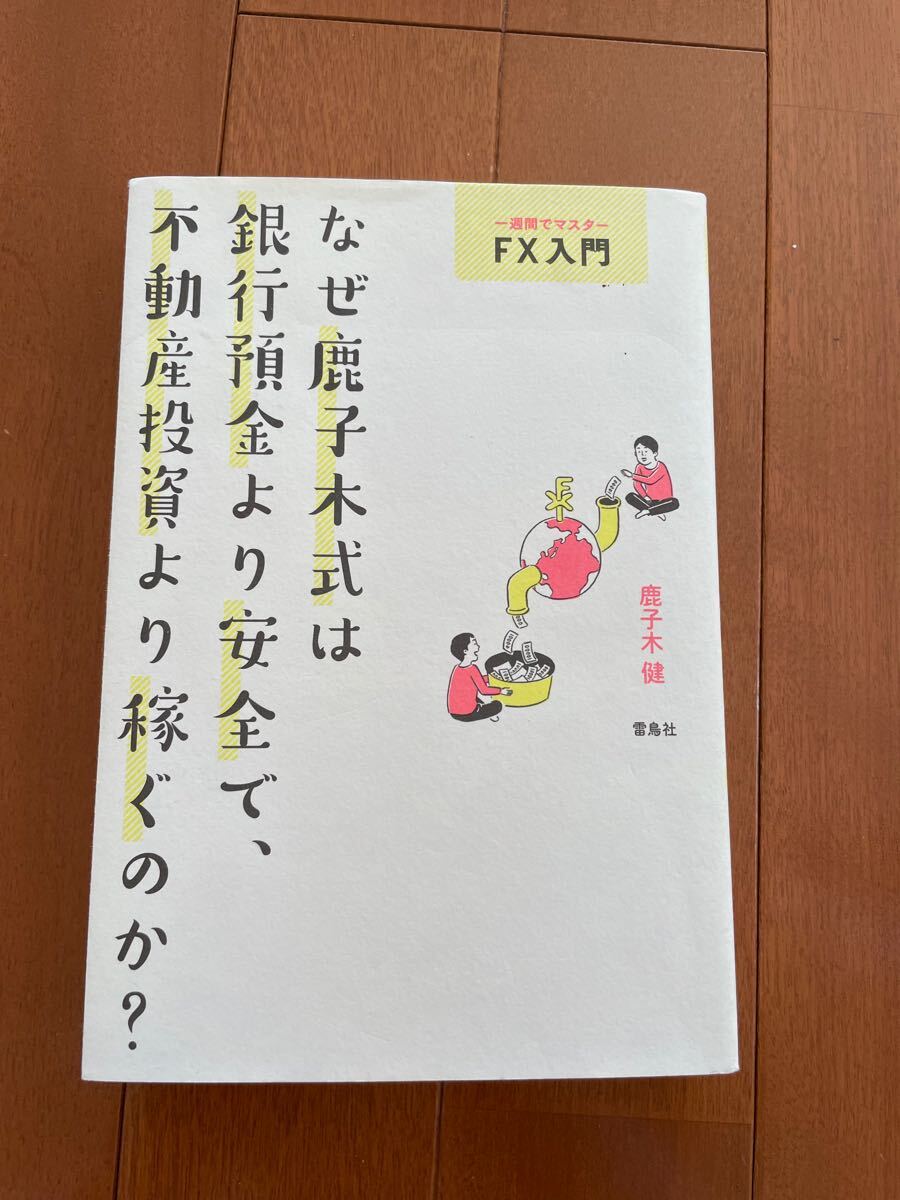 一週間でマスター
FX入門
なぜ鹿子木式は
銀行預金より安全で、
不動産投資より稼ぐのか?
FX
鹿子木 健
雷鳥社